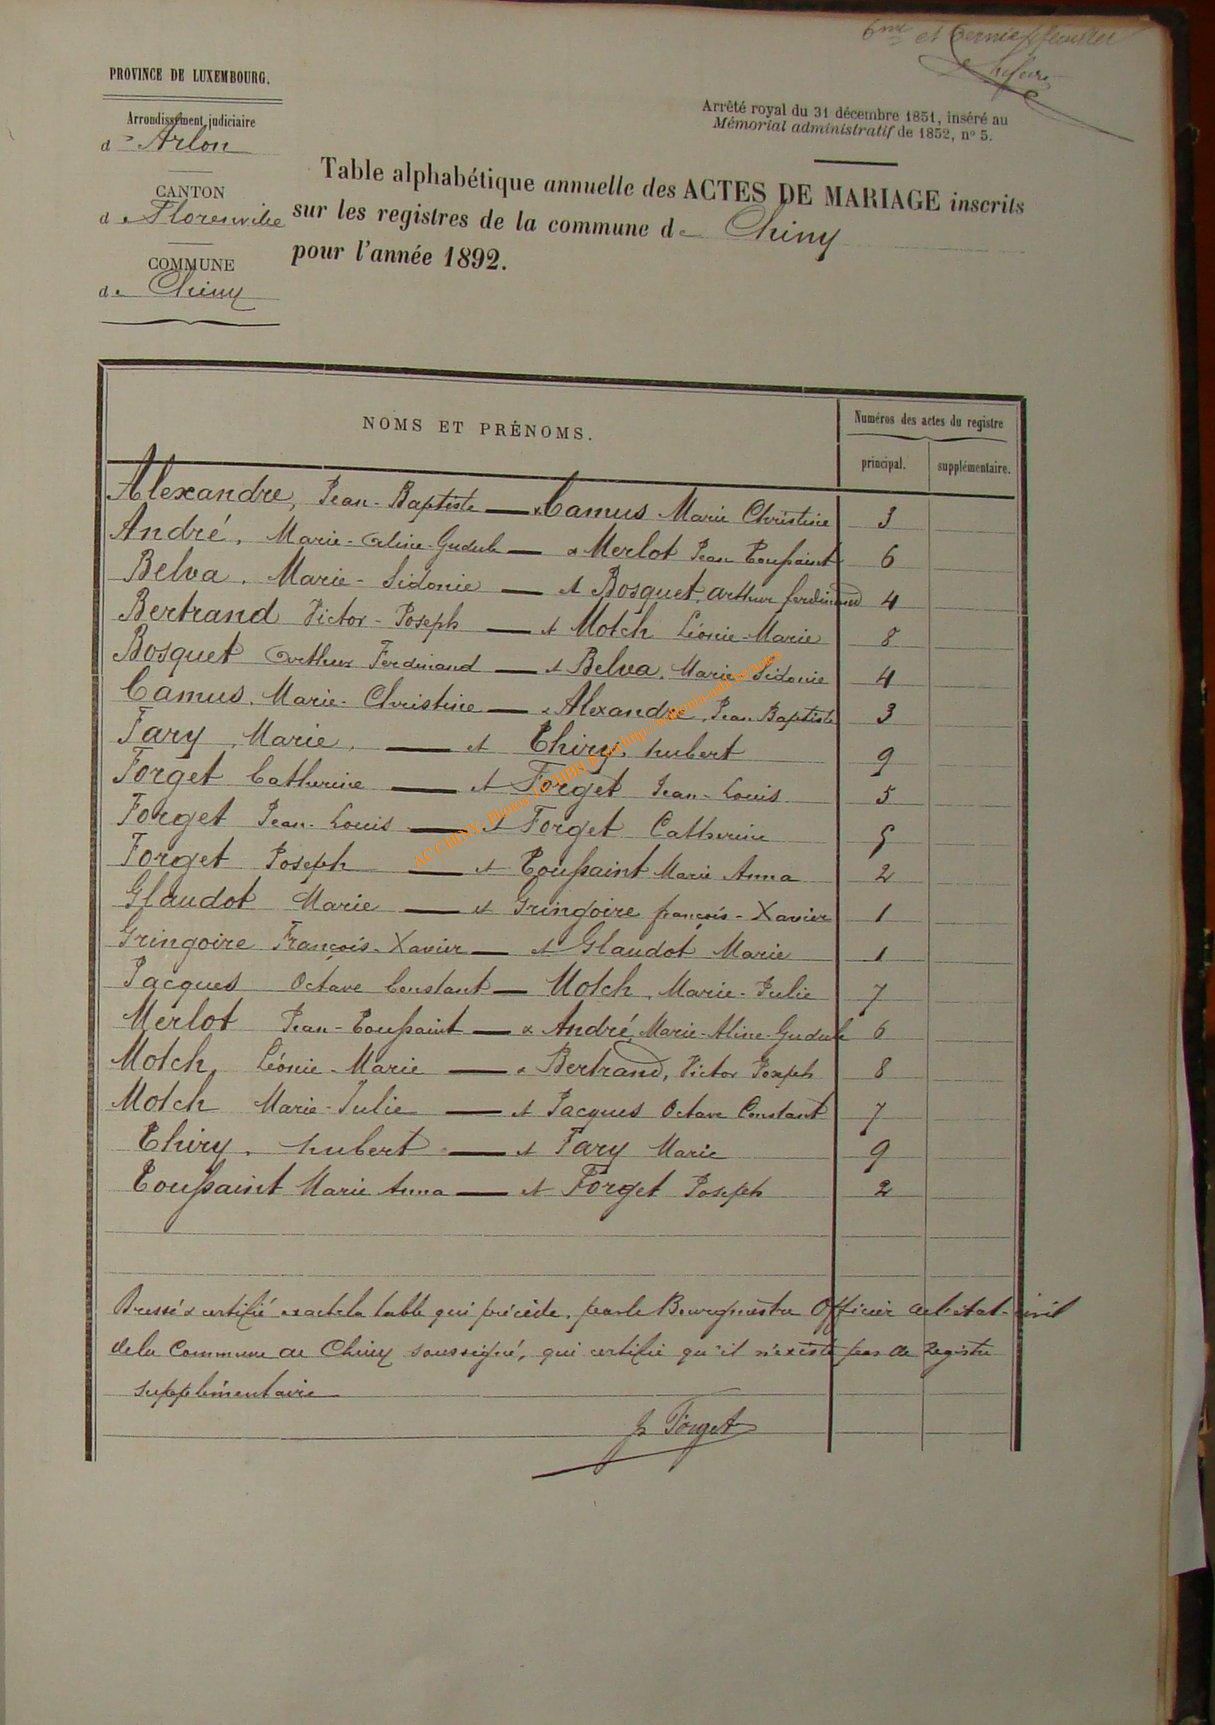 6me et dernier feuillet
PROVINCE DE LUXEMBOURG.
Arrondissement judiciaire
d' Arlon
CANTON
de Florenville
COMMUNE
de Chiny
Arrêté royal du 31 décembre 1851, inséré au
Mémorial administratif de 1852, no 5.
Table alphabétique annuelle des ACTES DE MARIAGE inscrits
sur les registres de la commune de Chiny
pour l'année 1892.
NOMS ET PRÉNOMS. Numéros des actes du registre
principal. supplémentaire.
Alexandre, Jean-Baptiste — & Camus Marie Christine 3
André, Marie-Aline-Gudule — & Merlot Jean Toussaint 6
Belva, Marie-Sidonie — et Bosquet, Arthur ferdinand 4
Bertrand Victor-Joseph — et Motch Léonie-Marie 8
Bosquet Arthur Ferdinand — et Belva, Marie Sidonie 4
Camus, Marie-Christine — & Alexandre, Jean Baptiste 3
Fary, Marie, — et Thiry, hubert 9
Forget Catherine — et Forget Jean-Louis 5
Forget Jean-Louis — et Forget Catherine 5
Forget Joseph — et Toussaint Marie Anna 2
Glaudot Marie — et Gringoire françois-Xavier 1
Gringoire François-Xavier — et Glaudot Marie 1
Jacques Octave Constant — Motch, Marie-Julie 7
Merlot Jean-Toussaint — & André Marie-Aline-Gudule 6
Motch, Léonie-Marie — & Bertrand, Victor Joseph 8
Motch Marie-Julie — et Jacques Octave Constant 7
Thiry, hubert — et Fary Marie 9
Toussaint Marie Anna — et Forget Joseph 2
Dressé & certifié exacte la table qui précède, par le Bourgmestre Officier de l'état-civil
de la Commune de Chiny soussigné, qui certifie qu'il n'existe pas de Registre
supplémentaire
J Forget